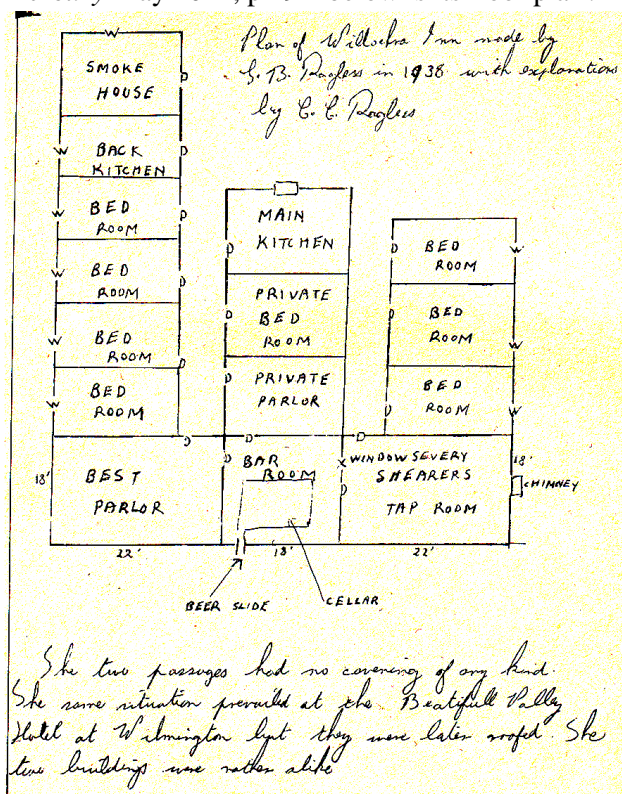 Plan of Willochra Inn made by
G. B. Ragless in 1938 with explanations
by C. C. Ragless
W
SMOKE
HOUSE
D
W
BACK
KITCHEN
D
W
BED
ROOM
D
W
BED
ROOM
D
W
BED
ROOM
D
W
BED
ROOM
MAIN
KITCHEN
D
PRIVATE
BED
ROOM
D
PRIVATE
PARLOR
D
D
BED
ROOM
W
D
BED
ROOM
W
D
BED
ROOM
W
D
D
D
18'
BEST
PARLOR
D
BAR
ROOM
X WINDOWSEVERY
SHEARERS
D
TAP ROOM
18'
CHIMNEY
22'
18'
22'
BEER SLIDE
CELLAR
The two passages had no covering of any kind.
The same situation prevailed at the Beatifull Valley
Hotel at Wilmington but they were later roofed. The
two buildings were rather alike